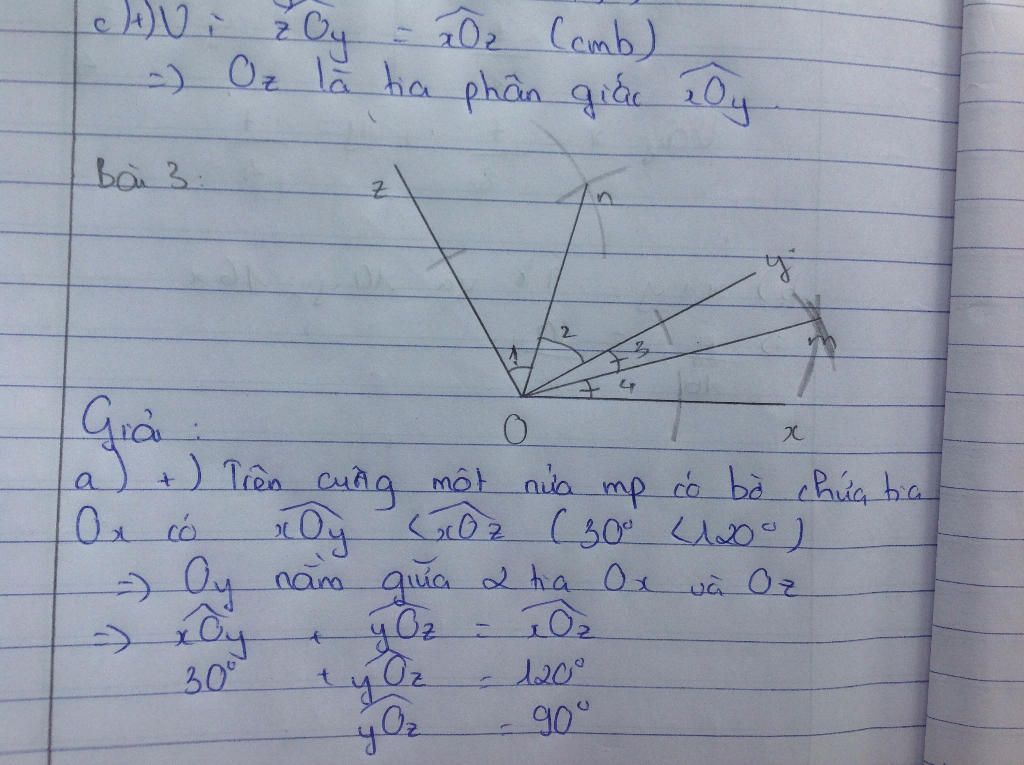 c) +) Vì zOy = xOz (cmb)
=> Oz là tia phân giác xOy.
Bài 3:
z
n
y
m
1
2
3
4
O
x
Giải:
a) +) Trên cùng một nửa mp có bờ chứa tia
Ox có xOy < xOz (30° < 120°)
=> Oy nằm giữa 2 tia Ox và Oz
=> xOy + yOz = xOz
30° + yOz = 120°
yOz = 90°